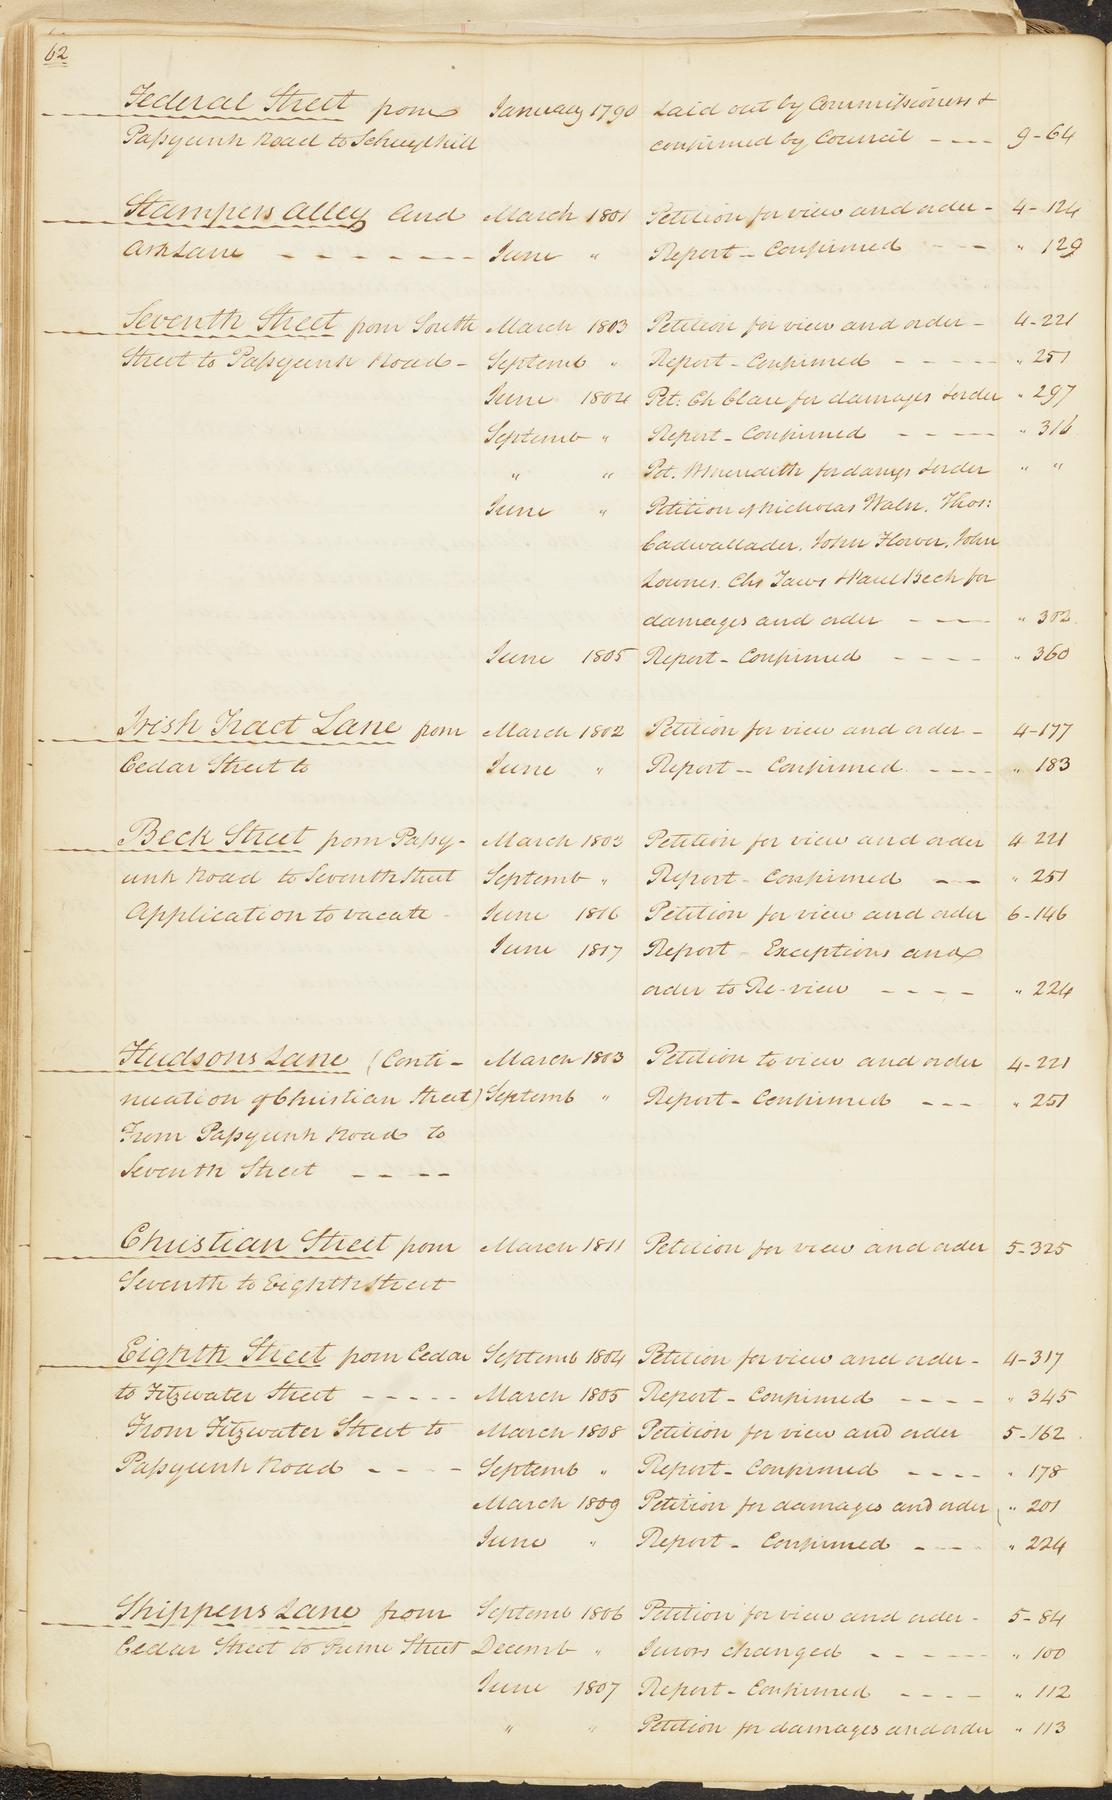 62
Federal Street from January 1790 Laid out by Commissioners &
Passyunk Road to Schuylkill confirmed by Council - - - - 9-64
Stampers Alley and March 1801 Petition for view and order - 4-124
Ash Lane - - - - - - - June " Report - Confirmed - - - " 129
Seventh Street from South March 1803 Petition for view and order - 4-221
Street to Passyunk Road - Septemb " Report - Confirmed - - - - - " 251
June 1804 Pet: Ch Clare for damages & order " 297
Septemb " Report - Confirmed - - - - " 316
" " Pet. W Meredith for damgs & order " "
June " Petition of Nicholas Waln, Thos:
Cadwallader, John Flower, John
Lownes, Chs Jaws & Paul Beck for
damages and order - - - - " 302
June 1805 Report - Confirmed - - - - " 360
Irish Tract Lane from March 1802 Petition for view and order - 4-177
Cedar Street to June " Report - Confirmed - - - - " 183
Beck Street from Passy- March 1803 Petition for view and order 4 221
unk Road to Seventh Street Septemb " Report - Confirmed - - " 251
Application to vacate - June 1816 Petition for view and order 6-146
June 1817 Report - Exceptions and
order to Re-view - - - - " 224
Hudsons Lane (Conti- March 1803 Petition to view and order 4-221
nuation of Christian Street) Septemb " Report - Confirmed - - - " 251
From Passyunk Road to
Seventh Street - - - -
Christian Street from March 1811 Petition for view and order 5-325
Seventh to Eighth Street
Eighth Street from Cedar Septemb 1804 Petition for view and order - 4-317
to Fitzwater Street - - - - - March 1805 Report - Confirmed - - - - " 345
From Fitzwater Street to March 1808 Petition for view and order 5-162
Passyunk Road - - - - Septemb " Report - Confirmed - - - - " 178
March 1809 Petition for damages and order " 201
June " Report - Confirmed - - - " 224
Shippens Lane from Septemb 1806 Petition for view and order - 5-84
Cedar Street to Prime Street Decemb " Jurors changed - - - - - - " 100
June 1807 Report - Confirmed - - - - " 112
" " Petition for damages and order " 113